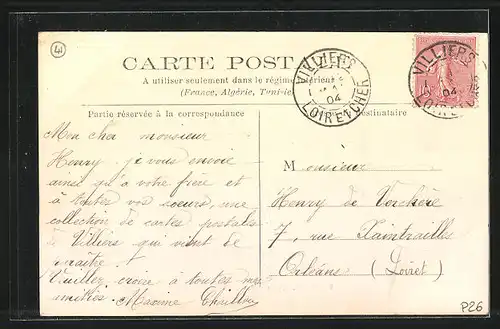 41
CARTE POSTALE
A utiliser seulement dans le régime intérieur
(France, Algérie, Tunisie)
VILLIERS
04
LOIR ET CHER
VILLIERS
04
LOIR ET CHER
Partie réservée à la correspondance
destinataire
Mon cher monsieur
Henry, je vous envoie
ainsi qu'à votre frère et
à toutes vos soeurs, une
collection de cartes postales
de Villiers qui vient de
naître !
Veuillez croire à toutes mes
amitiés. Maxime
Monsieur
Henry de Verchère
7, rue Xaintrailles
Orléans (Loiret)
P26